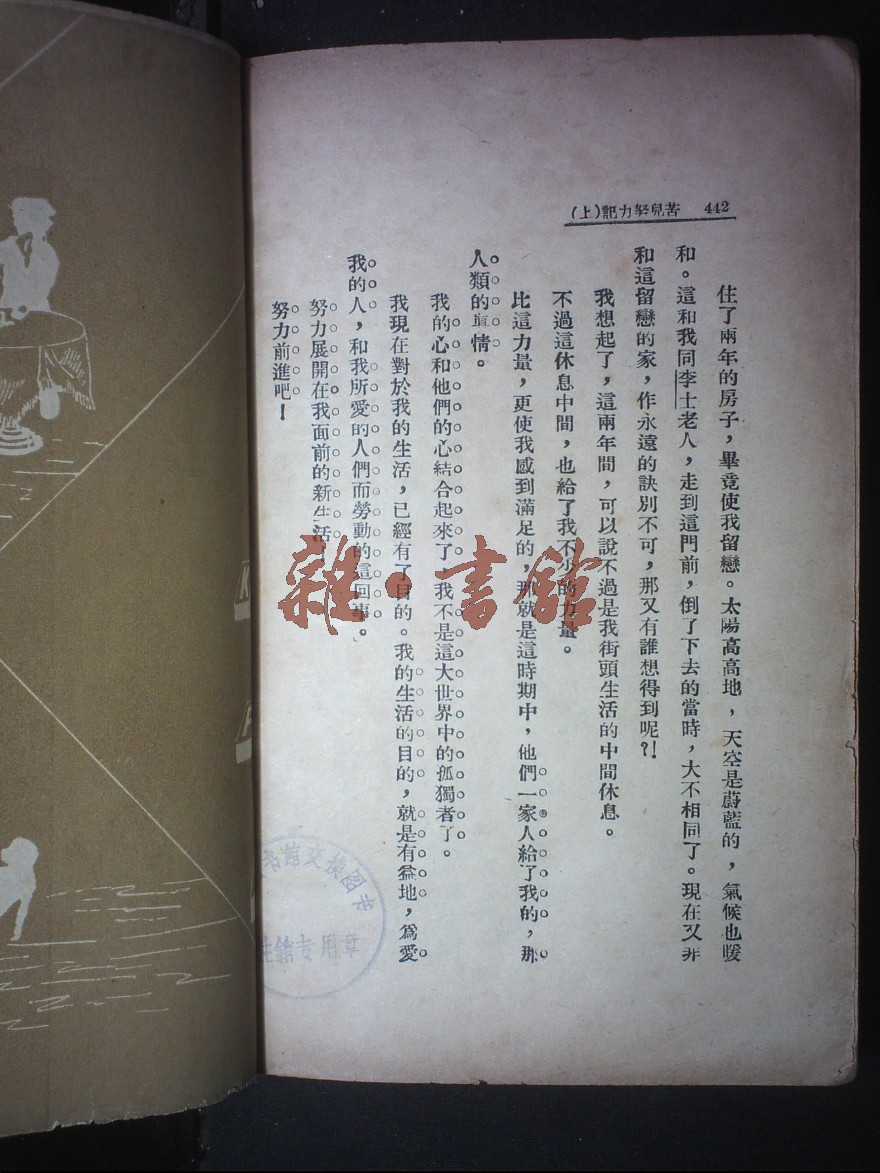 442 苦兒努力記(上)
住了兩年的房子，畢竟使我留戀。太陽高高地，天空是蔚藍的，氣候也暖
和。這和我同李士老人，走到這門前，倒了下去的當時，大不相同了。現在又非
和這留戀的家，作永遠的訣別不可，那又有誰想得到呢？！
我想起了，這兩年間，可以說不過是我街頭生活的中間休息。
不過這休息中間，也給了我不少的力量。
比這力量，更使我感到滿足的，那就是這時期中，他們一家人給了我的，那
人類的眞情。
我的心和他們的心結合起來了，我不是這大世界中的孤獨者了。
我現在對於我的生活，已經有了目的。我的生活的目的，就是有益地，爲愛
我的人，和我所愛的人們而勞動的這回事。
努力展開在我面前的新生活
努力前進吧！
雜·書館
交換图书
館专用章
K